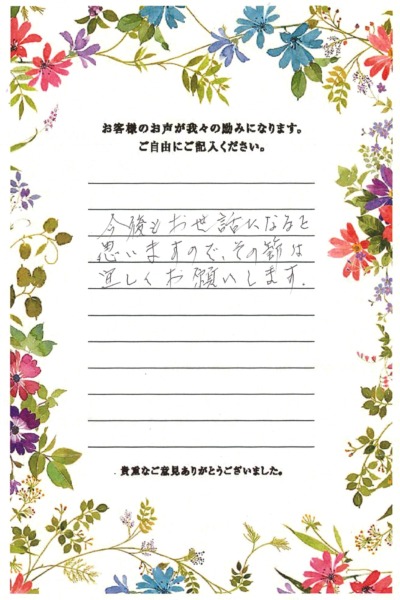 お客様のお声が我々の励みになります。
ご自由にご記入ください。
今後もお世話になると
思いますので、その節は
宜しくお願いします.
貴重なご意見ありがとうございました。